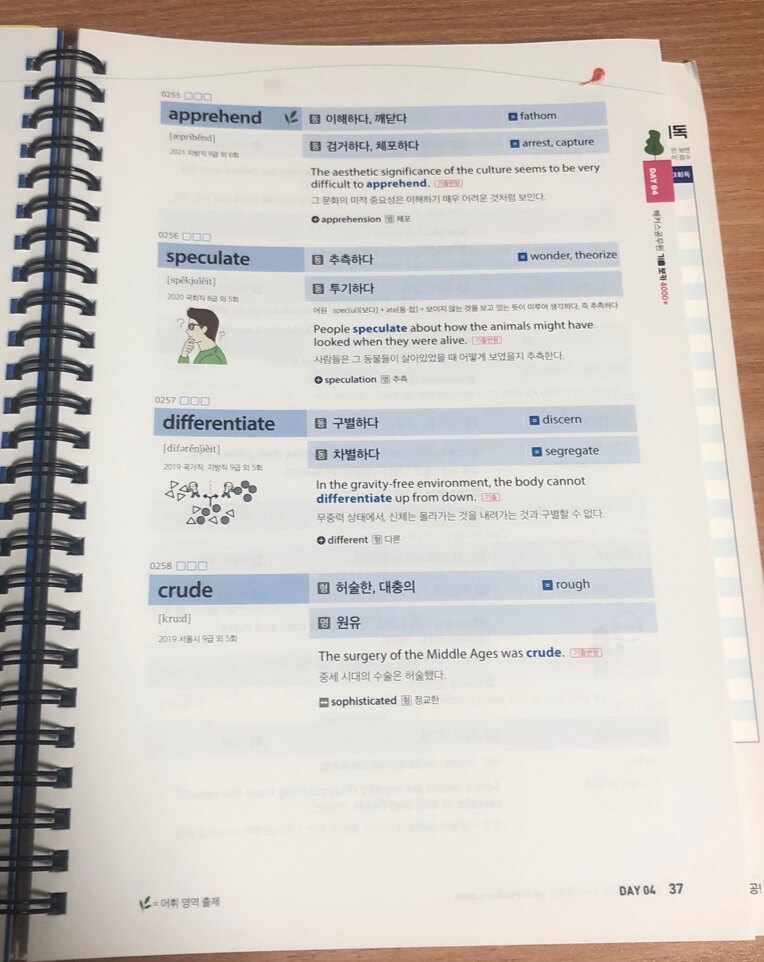 0255 □□□
apprehend 동 이해하다, 깨닫다 = fathom
[æprihénd] 동 검거하다, 체포하다 = arrest, capture
2021 지방직 9급 외 6회
The aesthetic significance of the culture seems to be very
difficult to apprehend. 기출변형
그 문화의 미적 중요성은 이해하기 매우 어려운 것처럼 보인다.
+ apprehension 명 체포
0256 □□□
speculate 동 추측하다 = wonder, theorize
[spékjulèit] 동 투기하다
2020 국회직 8급 외 5회
어원 spec(ul)[보다] + ate[동·접] = 보이지 않는 것을 보고 있는 듯이 미루어 생각하다, 즉 추측하다
People speculate about how the animals might have
looked when they were alive. 기출변형
사람들은 그 동물들이 살아있었을 때 어떻게 보였을지 추측한다.
+ speculation 명 추측
0257 □□□
differentiate 동 구별하다 = discern
[dìfərénʃièit] 동 차별하다 = segregate
2019 국가직, 지방직 9급 외 5회
In the gravity-free environment, the body cannot
differentiate up from down. 기출
무중력 상태에서, 신체는 올라가는 것을 내려가는 것과 구별할 수 없다.
+ different 형 다른
0258 □□□
crude 형 허술한, 대충의 = rough
[kru:d] 명 원유
2019 서울시 9급 외 5회
The surgery of the Middle Ages was crude. 기출변형
중세 시대의 수술은 허술했다.
sophisticated 형 정교한
= 어휘 영역 출제
DAY 04 37
DAY 04
해커스공무원 기출 보카 4000+
독
3회독
공!